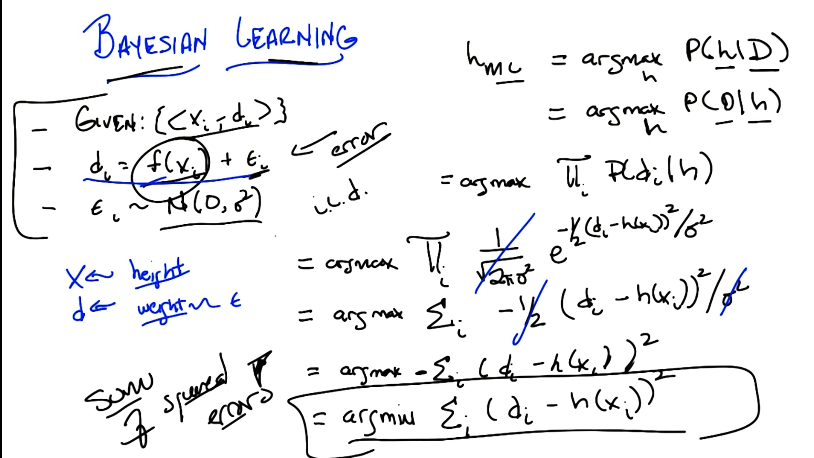 BAYESIAN LEARNING
- GIVEN: {<xᵢ, dᵢ>}
- dᵢ = f(xᵢ) + εᵢ ← error
- εᵢ ~ N(0, σ²) i.i.d.
x ← height
d ← weight ~ ε
sum of squared error
h_ML = argmax_h P(h|D)
= argmax_h P(D|h)
= argmax ∏ᵢ P(dᵢ|h)
= argmax ∏ᵢ 1/√2πσ² e^-½(dᵢ-h(xᵢ))²/σ²
= argmax Σᵢ -½ (dᵢ - h(xᵢ))²/σ²
= argmax -Σᵢ (dᵢ - h(xᵢ))²
= argmin Σᵢ (dᵢ - h(xᵢ))²